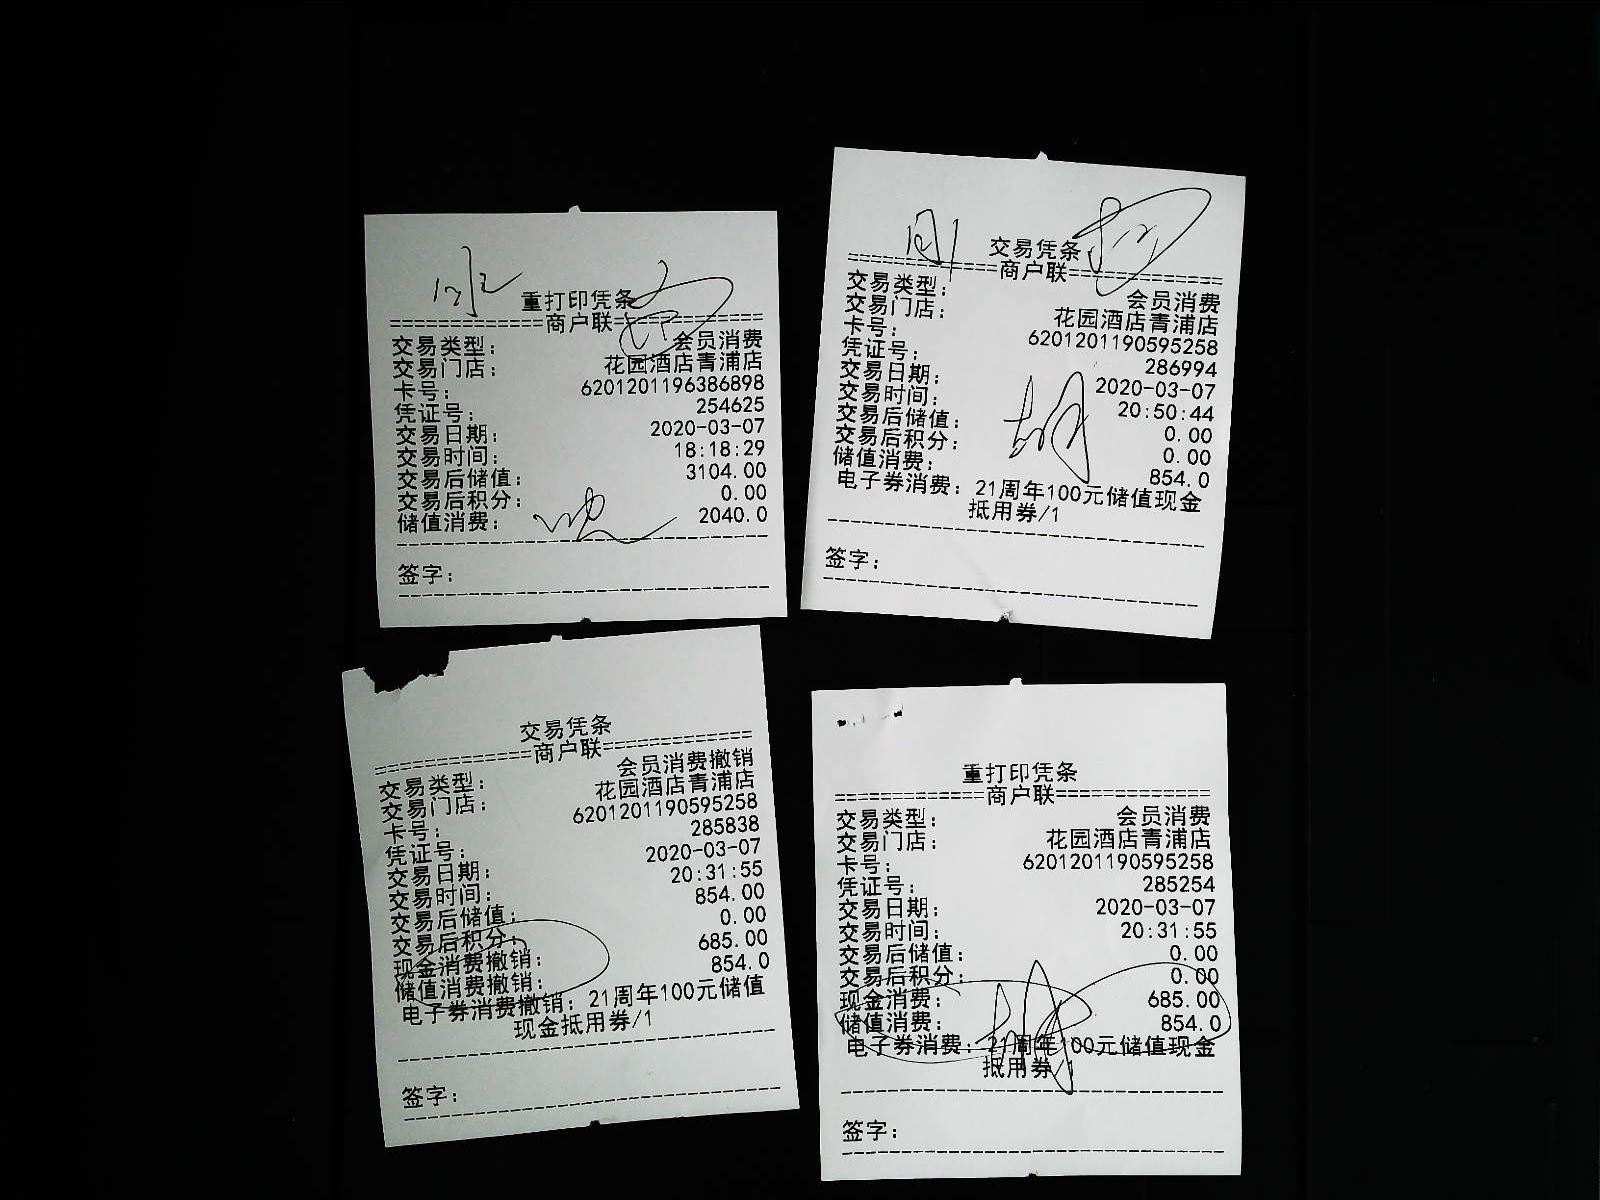 重打印凭条
============商户联============
交易类型: 会员消费
交易门店: 花园酒店青浦店
卡号: 6201201196386898
凭证号: 254625
交易日期: 2020-03-07
交易时间: 18:18:29
交易后储值: 3104.00
交易后积分: 0.00
储值消费: 2040.0
签字:
交易凭条
============商户联============
交易类型: 会员消费
交易门店: 花园酒店青浦店
卡号: 6201201190595258
凭证号: 286994
交易日期: 2020-03-07
交易时间: 20:50:44
交易后储值: 0.00
交易后积分: 0.00
储值消费: 854.0
电子券消费: 21周年100元储值现金
抵用券/1
签字:
交易凭条
============商户联============
交易类型: 会员消费撤销
交易门店: 花园酒店青浦店
卡号: 6201201190595258
凭证号: 285838
交易日期: 2020-03-07
交易时间: 20:31:55
交易后储值: 854.00
交易后积分: 0.00
现金消费撤销: 685.00
储值消费撤销: 854.0
电子券消费撤销: 21周年100元储值
现金抵用券/1
签字:
重打印凭条
============商户联============
交易类型: 会员消费
交易门店: 花园酒店青浦店
卡号: 6201201190595258
凭证号: 285254
交易日期: 2020-03-07
交易时间: 20:31:55
交易后储值: 0.00
交易后积分: 0.00
现金消费: 685.00
储值消费: 854.0
电子券消费: 21周年100元储值现金
抵用券/1
签字: